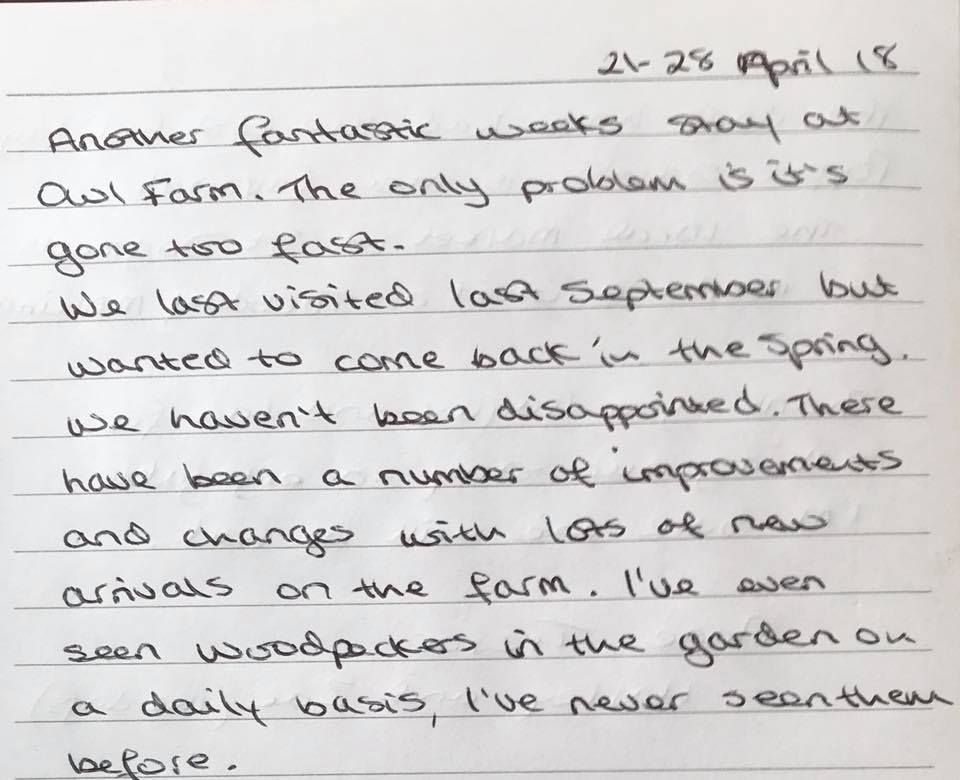 21-28 April 18
Another fantastic weeks stay at
Owl Farm. The only problem is it's
gone too fast.
We last visited last September but
wanted to come back in the Spring.
We haven't been disappointed. There
have been a number of improvements
and changes with lots of new
arrivals on the farm. I've even
seen woodpeckers in the garden on
a daily basis, I've never seen them
before.